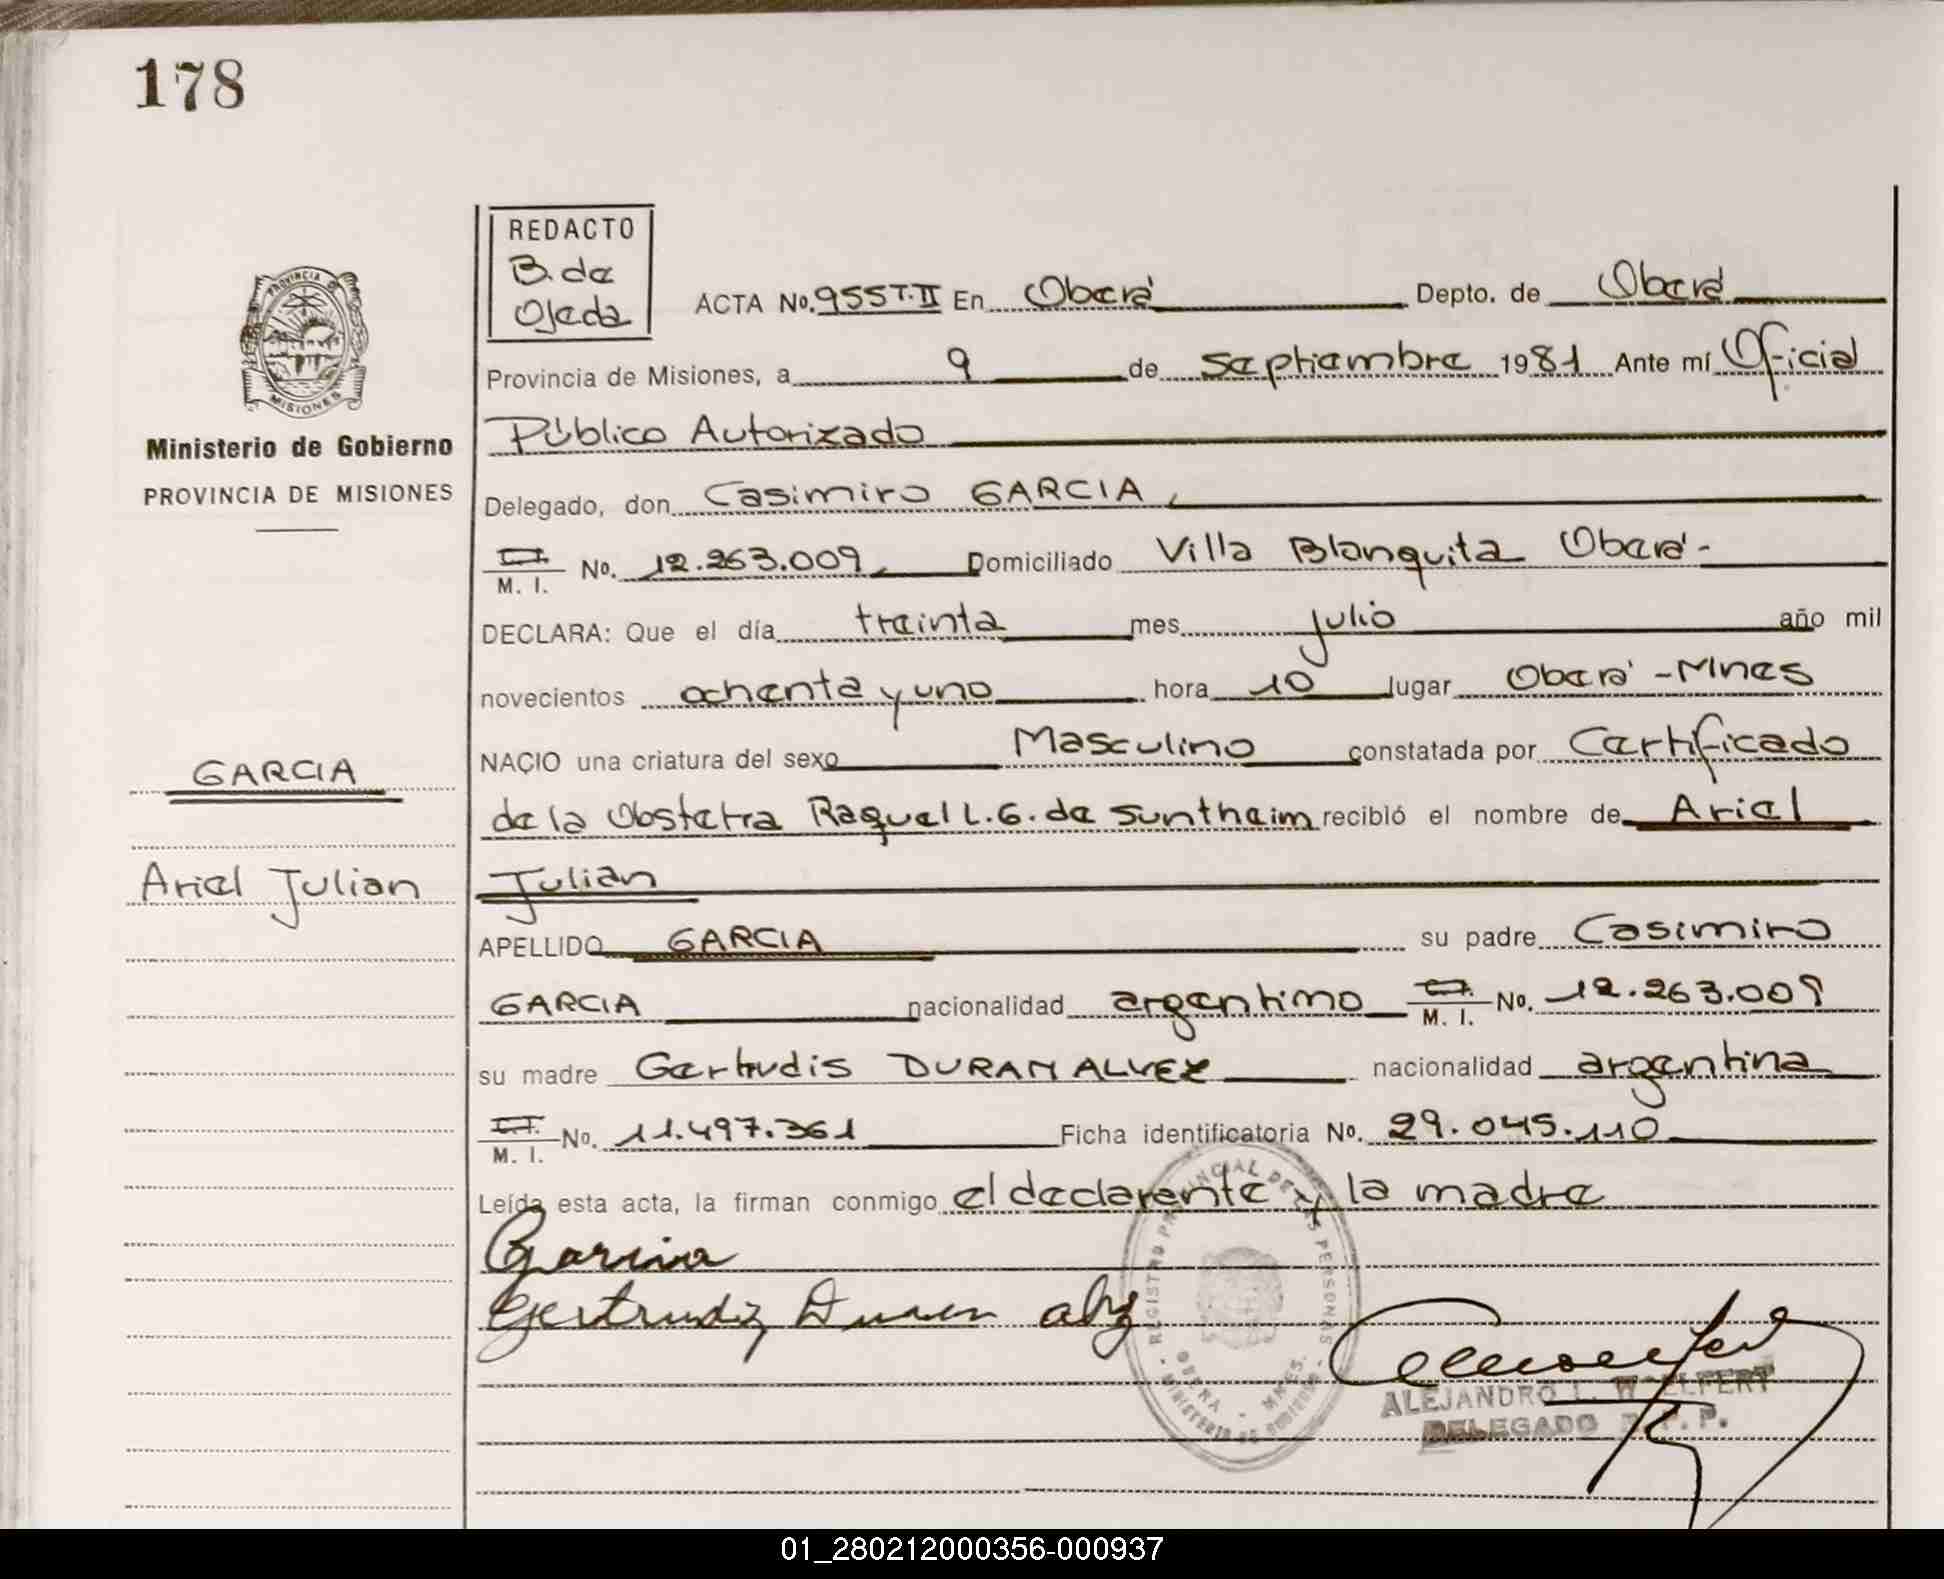 178
REDACTO
B. de
Ojeda
ACTA No. 955 T. II En Oberá Depto. de Oberá
Provincia de Misiones, a 9 de septiembre 1981 Ante mí Oficial
Público Autorizado
Delegado, don Casimiro GARCIA,
C.I. M. I. No. 12.263.009, Domiciliado Villa Blanquita Oberá-
DECLARA: Que el día treinta mes julio año mil
novecientos ochenta y uno hora 10 lugar Oberá - Mnes
NACIO una criatura del sexo Masculino constatada por Certificado
de la Obstetra Raquel L. G. de Suntheim recibió el nombre de Ariel
Julian
APELLIDO GARCIA su padre Casimiro
GARCIA nacionalidad argentino C.I. M. I. No. 12.263.009
su madre Gertrudis DURAN ALVEZ nacionalidad argentina
C.I. M. I. No. 11.497.361 Ficha identificatoria No. 29.045.110
Leída esta acta, la firman conmigo el declarante y la madre
Garcia
Gertrudiz Duran alvz
PROVINCIA DE
MISIONES
Ministerio de Gobierno
PROVINCIA DE MISIONES
GARCIA
Ariel Julian
- REGISTRO PROVINCIAL DE LAS PERSONAS -
OBERA - MNES.
MINISTERIO DE GOBIERNO
ALEJANDRO L. WOELFERT
DELEGADO R. P. P.
01_280212000356-000937